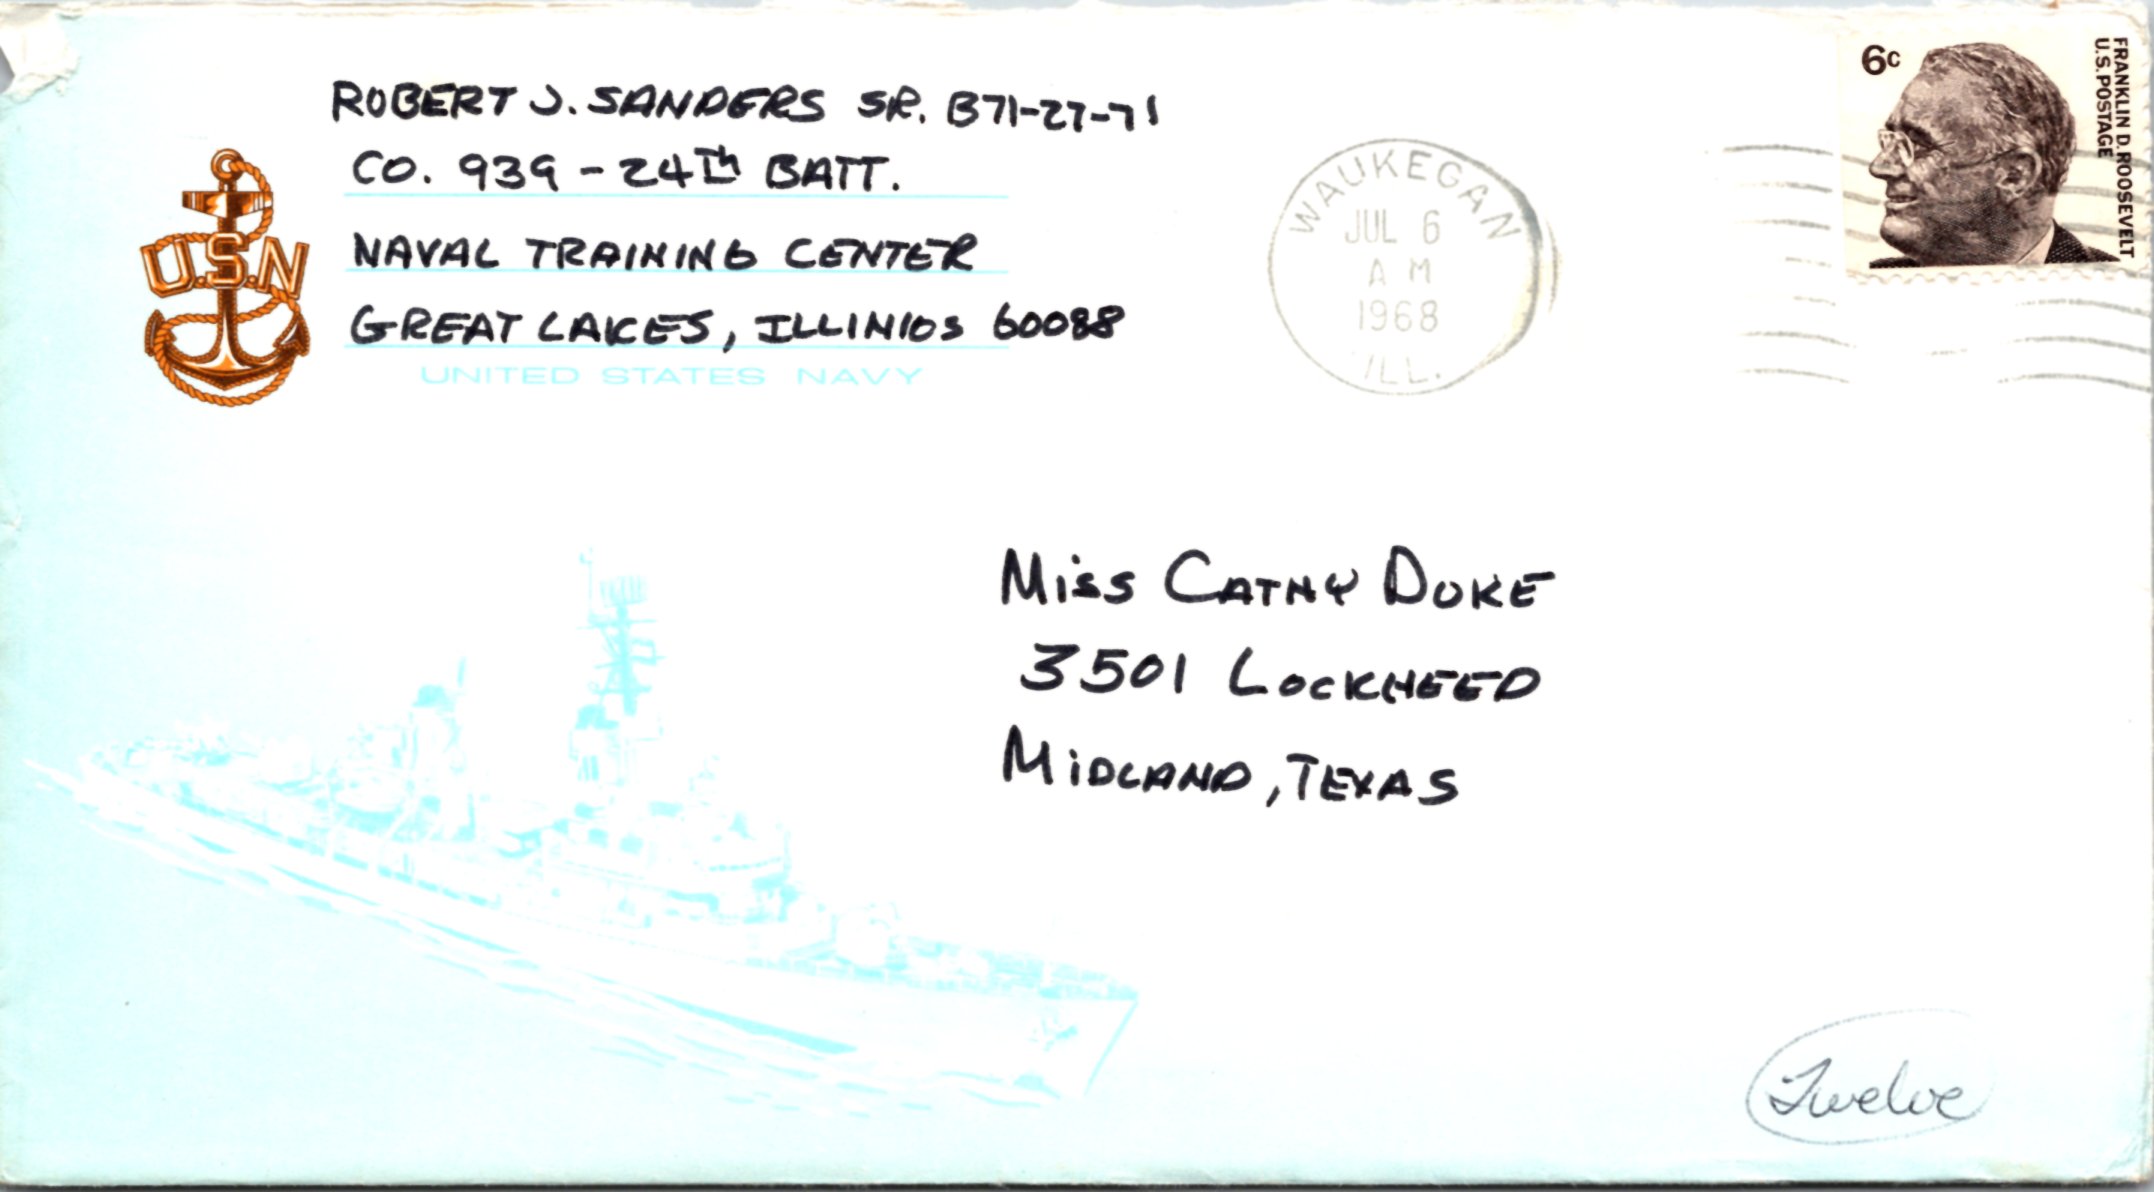 ROBERT J. SANDERS SR. B71-27-71
CO. 939 - 24Th BATT.
NAVAL TRAINING CENTER
GREAT LAKES, ILLINIOS 60088
UNITED STATES NAVY
U.S.N
WAUKEGAN
JUL 6
A M
1968
ILL.
6c
FRANKLIN D. ROOSEVELT
U.S. POSTAGE
Miss CATHY DUKE
3501 LOCKHEED
MiDLAND, TEXAS
Twelve